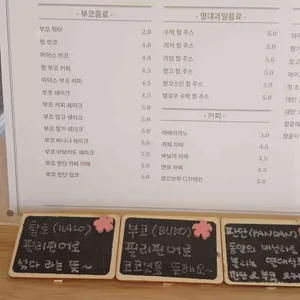 - 부코음료 -
부코 워터 2.0
핫 부코 4.5
아이스 부코 4.5
핫 부코 커피 4.5
아이스 부코 커피 4.5
부코 쉐이크 4.5
부코 커피 쉐이크 5.0
부코 망고 쉐이크 5.0
부코 딸기 쉐이크 5.0
부코 바나나 쉐이크 5.0
부코 아보카도 쉐이크 5.0
부코 판단 커피 라떼 5.0
부코 판단 밀크 5.0
- 열대과일음료 -
수박 컵 주스 5.0
리치 컵 주스 5.0
라임 컵 주스 5.0
망고 컵 주스 5.0
망고스틴 컵 주스 5.0
옐로우 수박 컵 주스 5.0
- 커피 -
아메리카노 3.0
카페 라떼
바닐라 라떼
연유 라떼
콜드브루 디카페인 5.0
할로 (HALO)
필리핀어로
섞다 라는 뜻~
부코 (BUKO)
필리핀어로
코코넛을 뜻해요~
판단 (PANDAN)
동양의 바닐라로
불리는
판단 & 부코